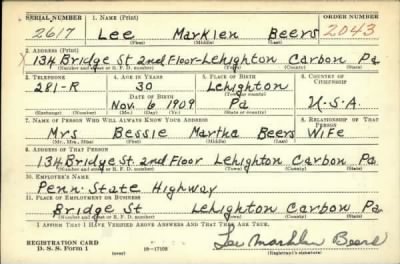 SERIAL NUMBER 1. NAME (Print) ORDER NUMBER
2617 Lee Marklen Beers 2043
(First) (Middle) (Last)
2. ADDRESS (Print)
134 Bridge St 2nd Floor-Lehighton Carbon Pa
(Number and street or R. F. D. number) (Town) (County) (State)
3. TELEPHONE 4. AGE IN YEARS 5. PLACE OF BIRTH 6. COUNTRY OF CITIZENSHIP
281-R 30 Lehighton
DATE OF BIRTH (Town or county)
Nov. 6 1909 Pa U.S.A.
(Exchange) (Number) (Mo.) (Day) (Yr.) (State or country)
7. NAME OF PERSON WHO WILL ALWAYS KNOW YOUR ADDRESS 8. RELATIONSHIP OF THAT PERSON
Mrs Bessie Martha Beers Wife
(Mr., Mrs., Miss) (First) (Middle) (Last)
9. ADDRESS OF THAT PERSON
134 Bridge St. 2nd Floor Lehighton Carbon Pa
(Number and street or R. F. D. number) (Town) (County) (State)
10. EMPLOYER'S NAME
Penn. State Highway
11. PLACE OF EMPLOYMENT OR BUSINESS
Bridge St Lehighton Carbon Pa
(Number and street or R. F. D. number) (Town) (County) (State)
I AFFIRM THAT I HAVE VERIFIED ABOVE ANSWERS AND THAT THEY ARE TRUE.
REGISTRATION CARD
D. S. S. Form 1 16-17105 Lee Marklen Beers
(Registrant's signature)